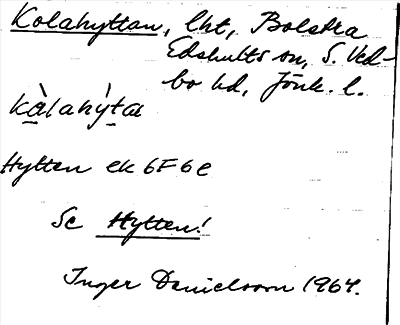 Kolahyttan, lht, Bolstra
Edshults sn, S. Ved-
bo hd, Jönk. l.
kàlahỳtaɩ
Hytten ek 6F6e
Se Hytten!
Inger Danielsson 1964.